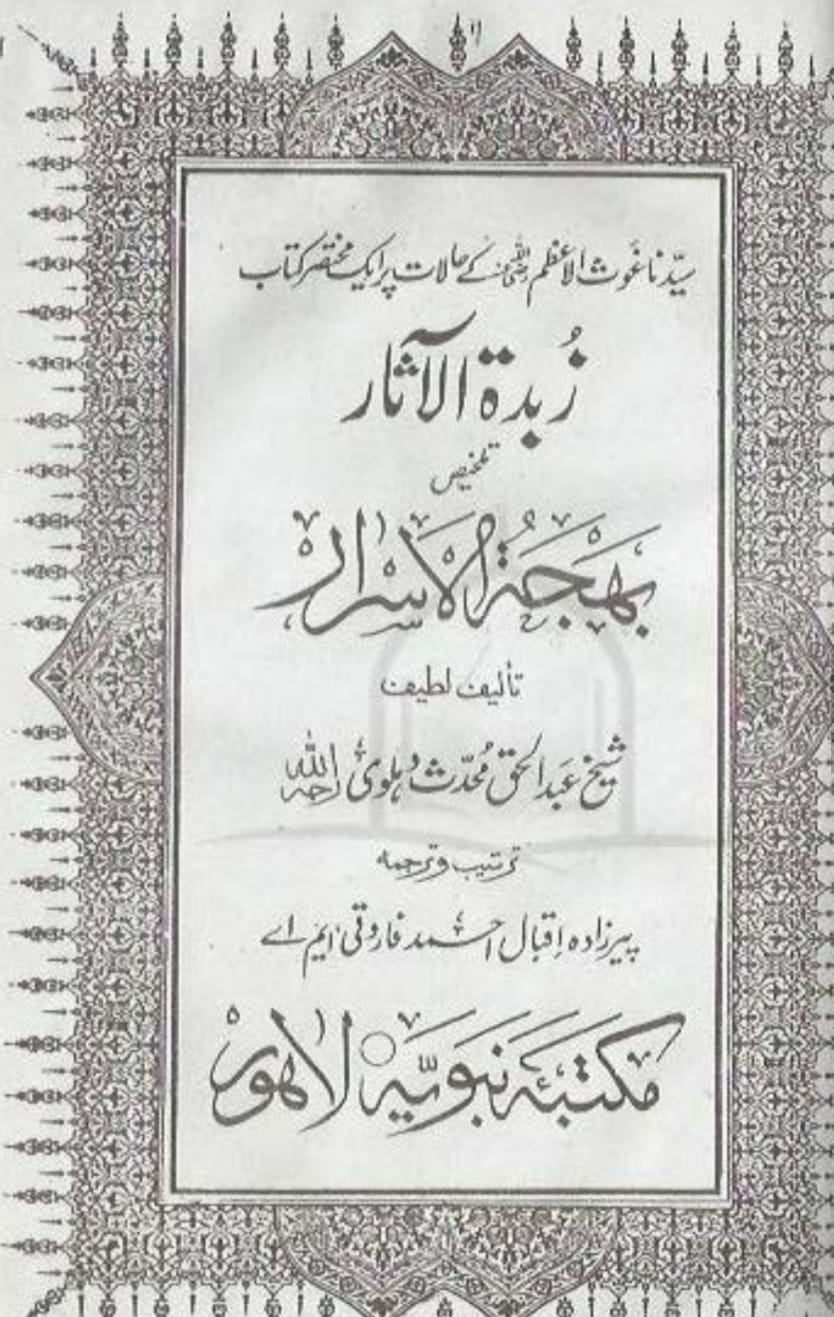 سیّدنا غوث الاعظم رضی اللہ عنہ کے حالات پر ایک مختصر کتاب
زُبدۃ الآثار
تلخیص
بهجۃ الاسرار
تألیف لطیف
شیخ عبدالحق مُحدّث دہلوی رحمہ اللہ
ترتیب و ترجمہ
پیرزادہ اِقبال احمد فاروقی ایم اے
مکتبۂ نبویّہ لاهور